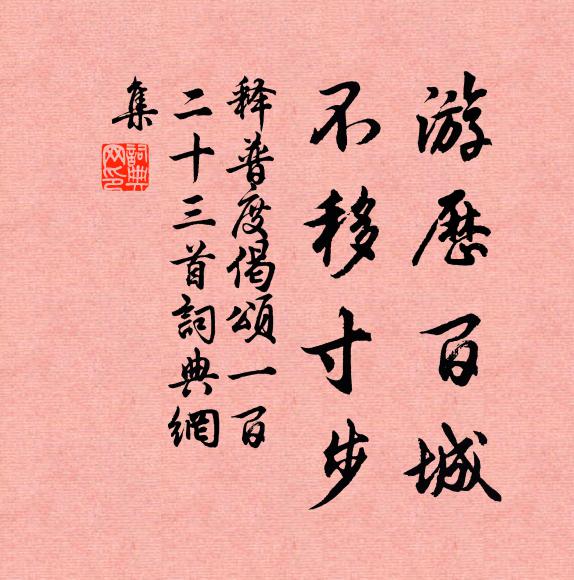 游歷百城
不移寸步
释普度偈頌一百
二十三首詞典網
集
詞典網印